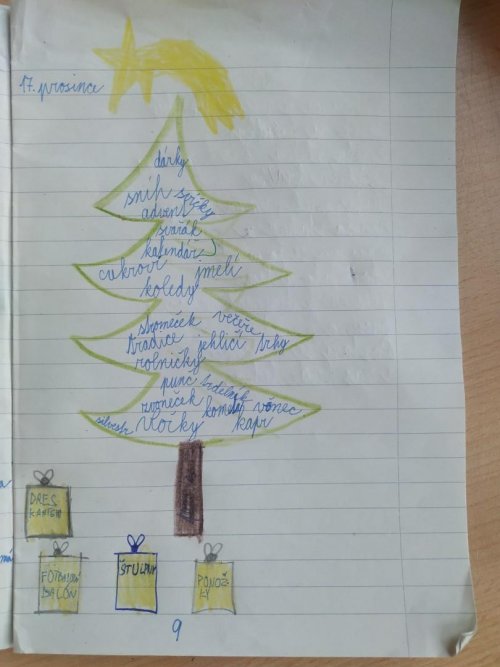 17. prosince
dárky
sníh svíčky
advent
svařák
kalendář
cukroví jmelí
koledy
stromeček večeře
tradice jehličí trhy
rolničky
punč trdelník
zvoneček kometa věnec
silvestr vločky kapr
DRES
FOTBALOVÝ
BALÓN
ŠTULPNY
PONOŽ
KY
9